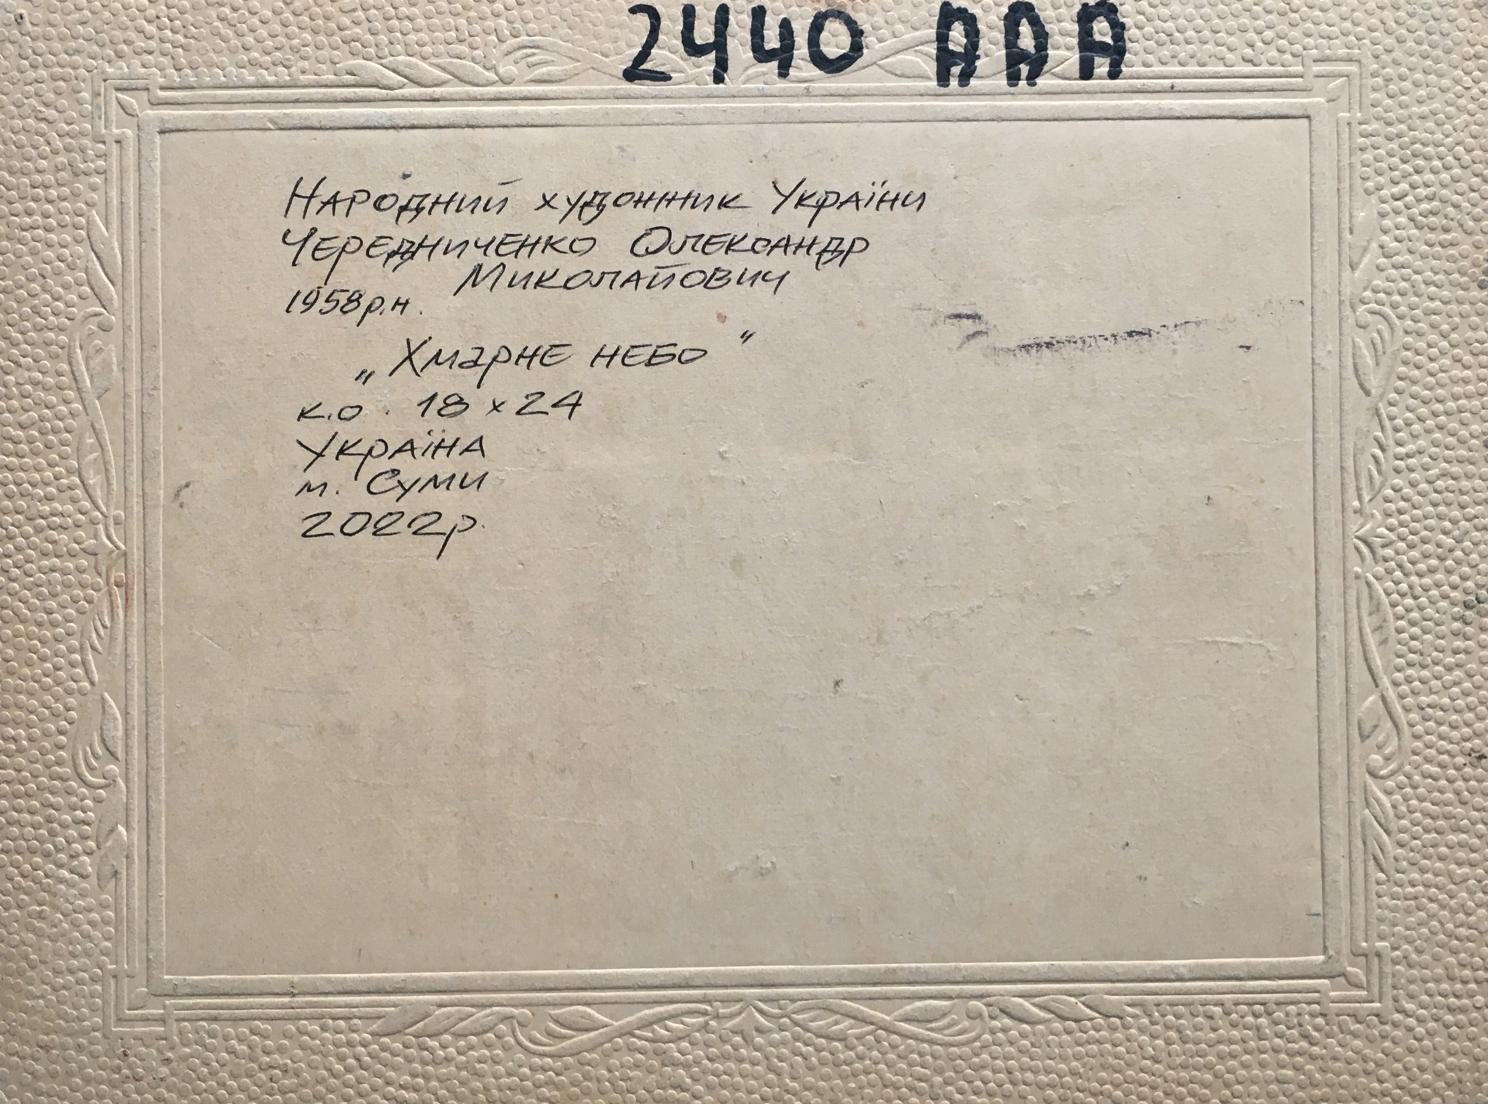 2440 AAA
Народний художник України
Чередниченко Олександр
Миколайович
1958р.н.
„Хмарне небо"
к.о. 18 х 24
Україна
м. Суми
2022р.